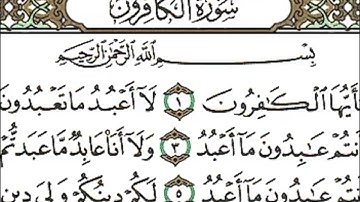 سُورَةُ الْكَافِرُونَ
بِسْمِ اللَّهِ الرَّحْمَٰنِ الرَّحِيمِ
يَأَيُّهَا الْكَٰفِرُونَ ١ لَآ أَعْبُدُ مَا تَعْبُدُونَ
نتُمْ عَٰبِدُونَ مَآ أَعْبُدُ ٣ وَلَآ أَنَا۠ عَابِدٌ مَّا عَبَدتُّمْ
نتُمْ عَٰبِدُونَ مَآ أَعْبُدُ ٥ لَكُمْ دِينُكُمْ وَلِىَ دِينِ